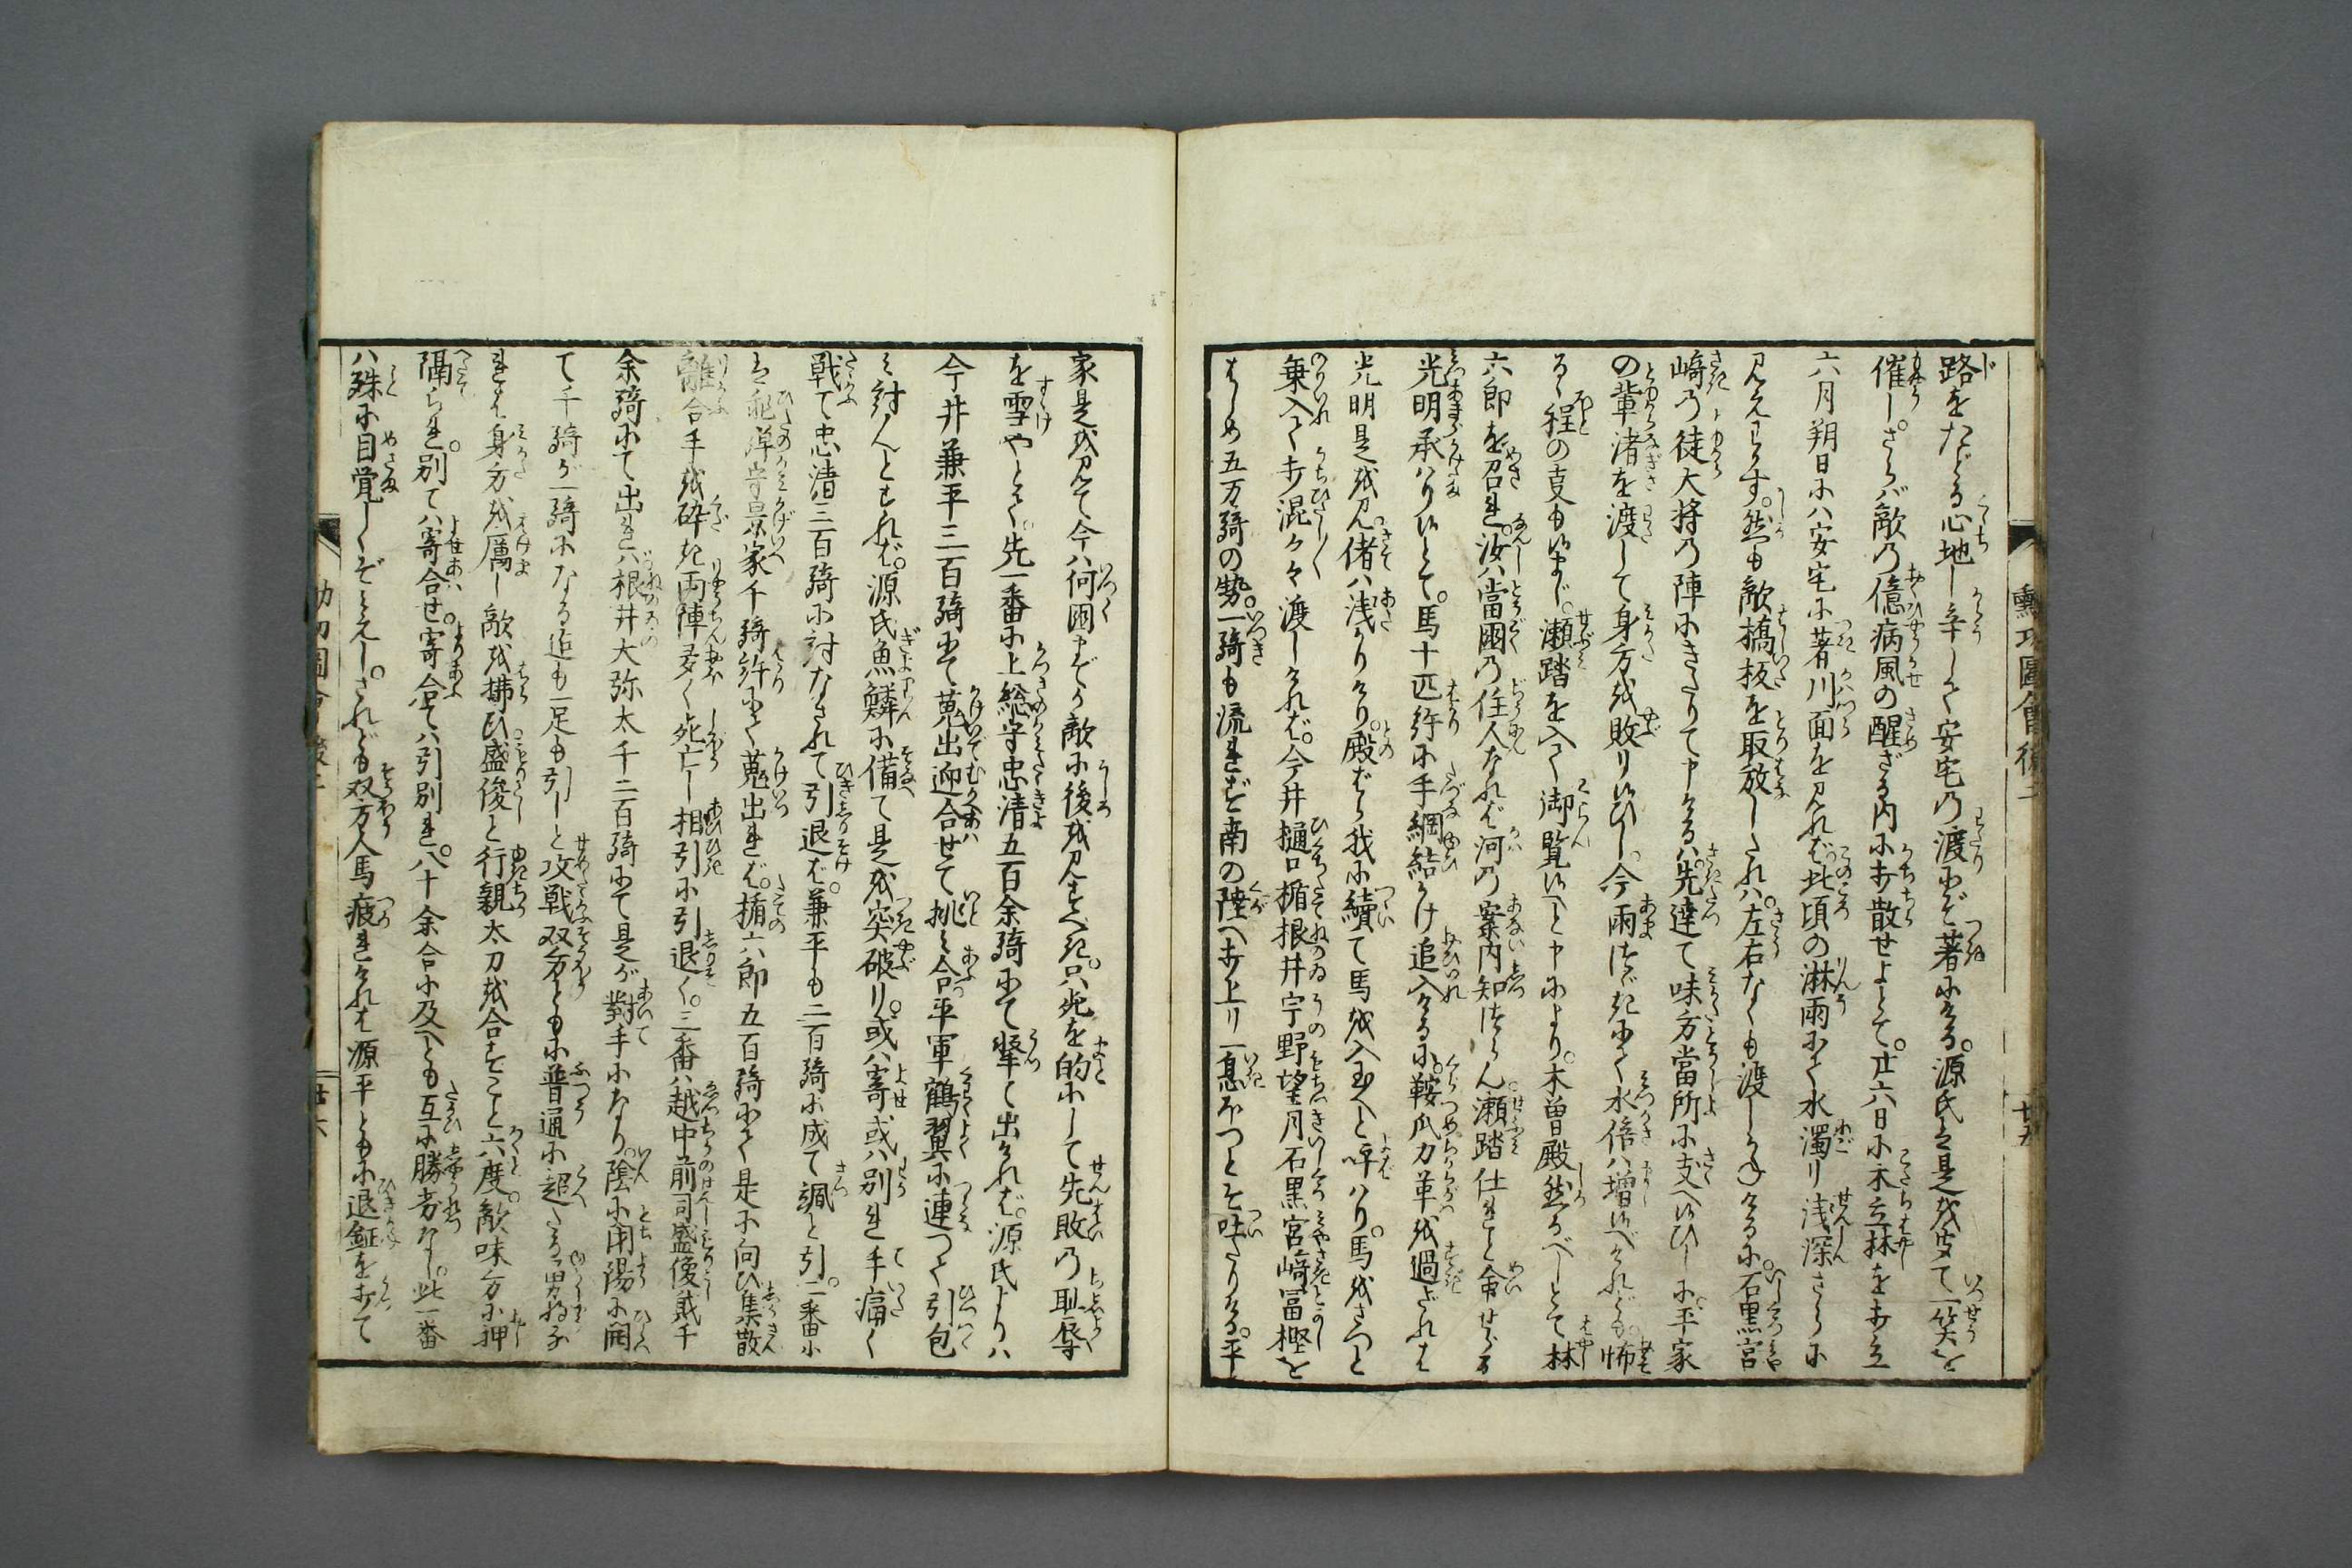 路をたどる心地し辛しくて安宅の渡にぞ著にける。源氏は是を見て一笑を
催し。さらバ敵の億病風の醒ざる内に打散せよとて。廿六日に木立林を打立
六月朔日にハ安宅に著川面を見れバ。此頃の淋雨にて水濁り浅深さらに
見えわかず。然も敵橋板を取放したれハ。左右なくも渡しかねけるに。石黒宮
崎の徒大将の陣にきたりて申けるハ。先達て味方當所に支へ候ひしに。平家
の輩渚を渡して身方を敗り候ひし。今雨つゞきにて水倍ハ増候べけれども。怖
るゝ程の支も候まじ。瀬踏を入て御覧候へと申により。木曽殿然るべしとて林
六郎を召れ。汝ハ當國の住人なれバ河の案内知つらん。瀬踏仕れと命せらる
光明承ハり候とて。馬十匹許に手綱結かけ追入けるに。鞍爪力革を過ざれは
光明是を見。偖ハ浅かりけり。殿ばら我に續て馬を入玉へと呼ハり。馬をさつと
乗入て打混々々渡しけれバ。今井樋口楯根井宇野望月石黒宮崎冨樫を
はじめ五万騎の勢。一騎も流れず南の陸へ打上り一息ほつとそ吐たりける。平
家是を見て今ハ何國までか敵に後を見すべき。只死を的にして先敗の耻辱
を雪やとて。先一番に上総守忠清五百余騎にて犇と出けれバ。源氏よりハ
今井兼平三百騎にて蒐出迎合せて挑み合。平軍鶴翼に連つて引包
み討んとすれバ。源氏魚鱗に備て是を突破り。或ハ寄或ハ別れ手痛く
戦て忠清三百騎に討なされて引退ば。兼平も二百騎に成て颯と引。二番に
は飛騨守景家千騎許にて蒐出れバ。楯六郎五百騎にて是に向ひ集散
離合手を砕き両陣多く死亡し相引に引退く。三番ハ越中前司盛俊貳千
余騎にて出れハ根井大弥太千二百騎にて是が對手になり。陰に閉陽に開
て千騎が一騎になる迄も一足も引しと攻戦双方ともに普通に超たる男なれ
れは身方を厲し敵を拂ひ盛俊と行親太刀を合すこと六度。敵味方に押
隔られ。別てハ寄合せ。寄合てハ引別れ。八十余合に及へとも互に勝劣なし。此一番
ハ殊に目覚しくぞみえし。されども双方人馬疲れけれは源平ともに退鉦を打て
勲功圖會後二
廿五
廿六